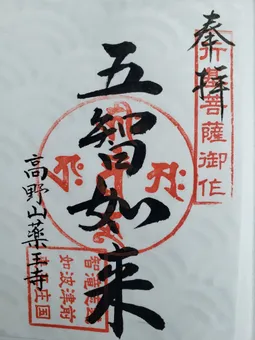 奉拝
行基菩薩御作
五智如来
高野山藥王寺